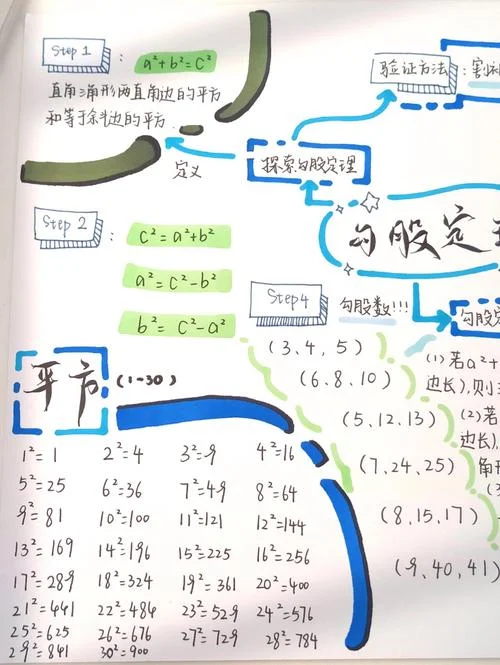 Step 1 : a²+b²=c²
直角三角形两直角边的平方
和等于斜边的平方
定义
探索勾股定理
验证方法: 割
勾股定
Step 2 : c²=a²+b²
a²=c²-b²
b²=c²-a²
Step4 勾股数!!!
(3,4,5)
(6,8,10)
(5,12,13)
(7,24,25)
(8,15,17)
(9,40,41)
勾股定
(1)若a²+
边长),则
(2)若
边长),
角形
平方 (1-30)
1²=1 2²=4 3²=9 4²=16
5²=25 6²=36 7²=49 8²=64
9²=81 10²=100 11²=121 12²=144
13²=169 14²=196 15²=225 16²=256
17²=289 18²=324 19²=361 20²=400
21²=441 22²=484 23²=529 24²=576
25²=625 26²=676 27²=729 28²=784
29²=841 30²=900